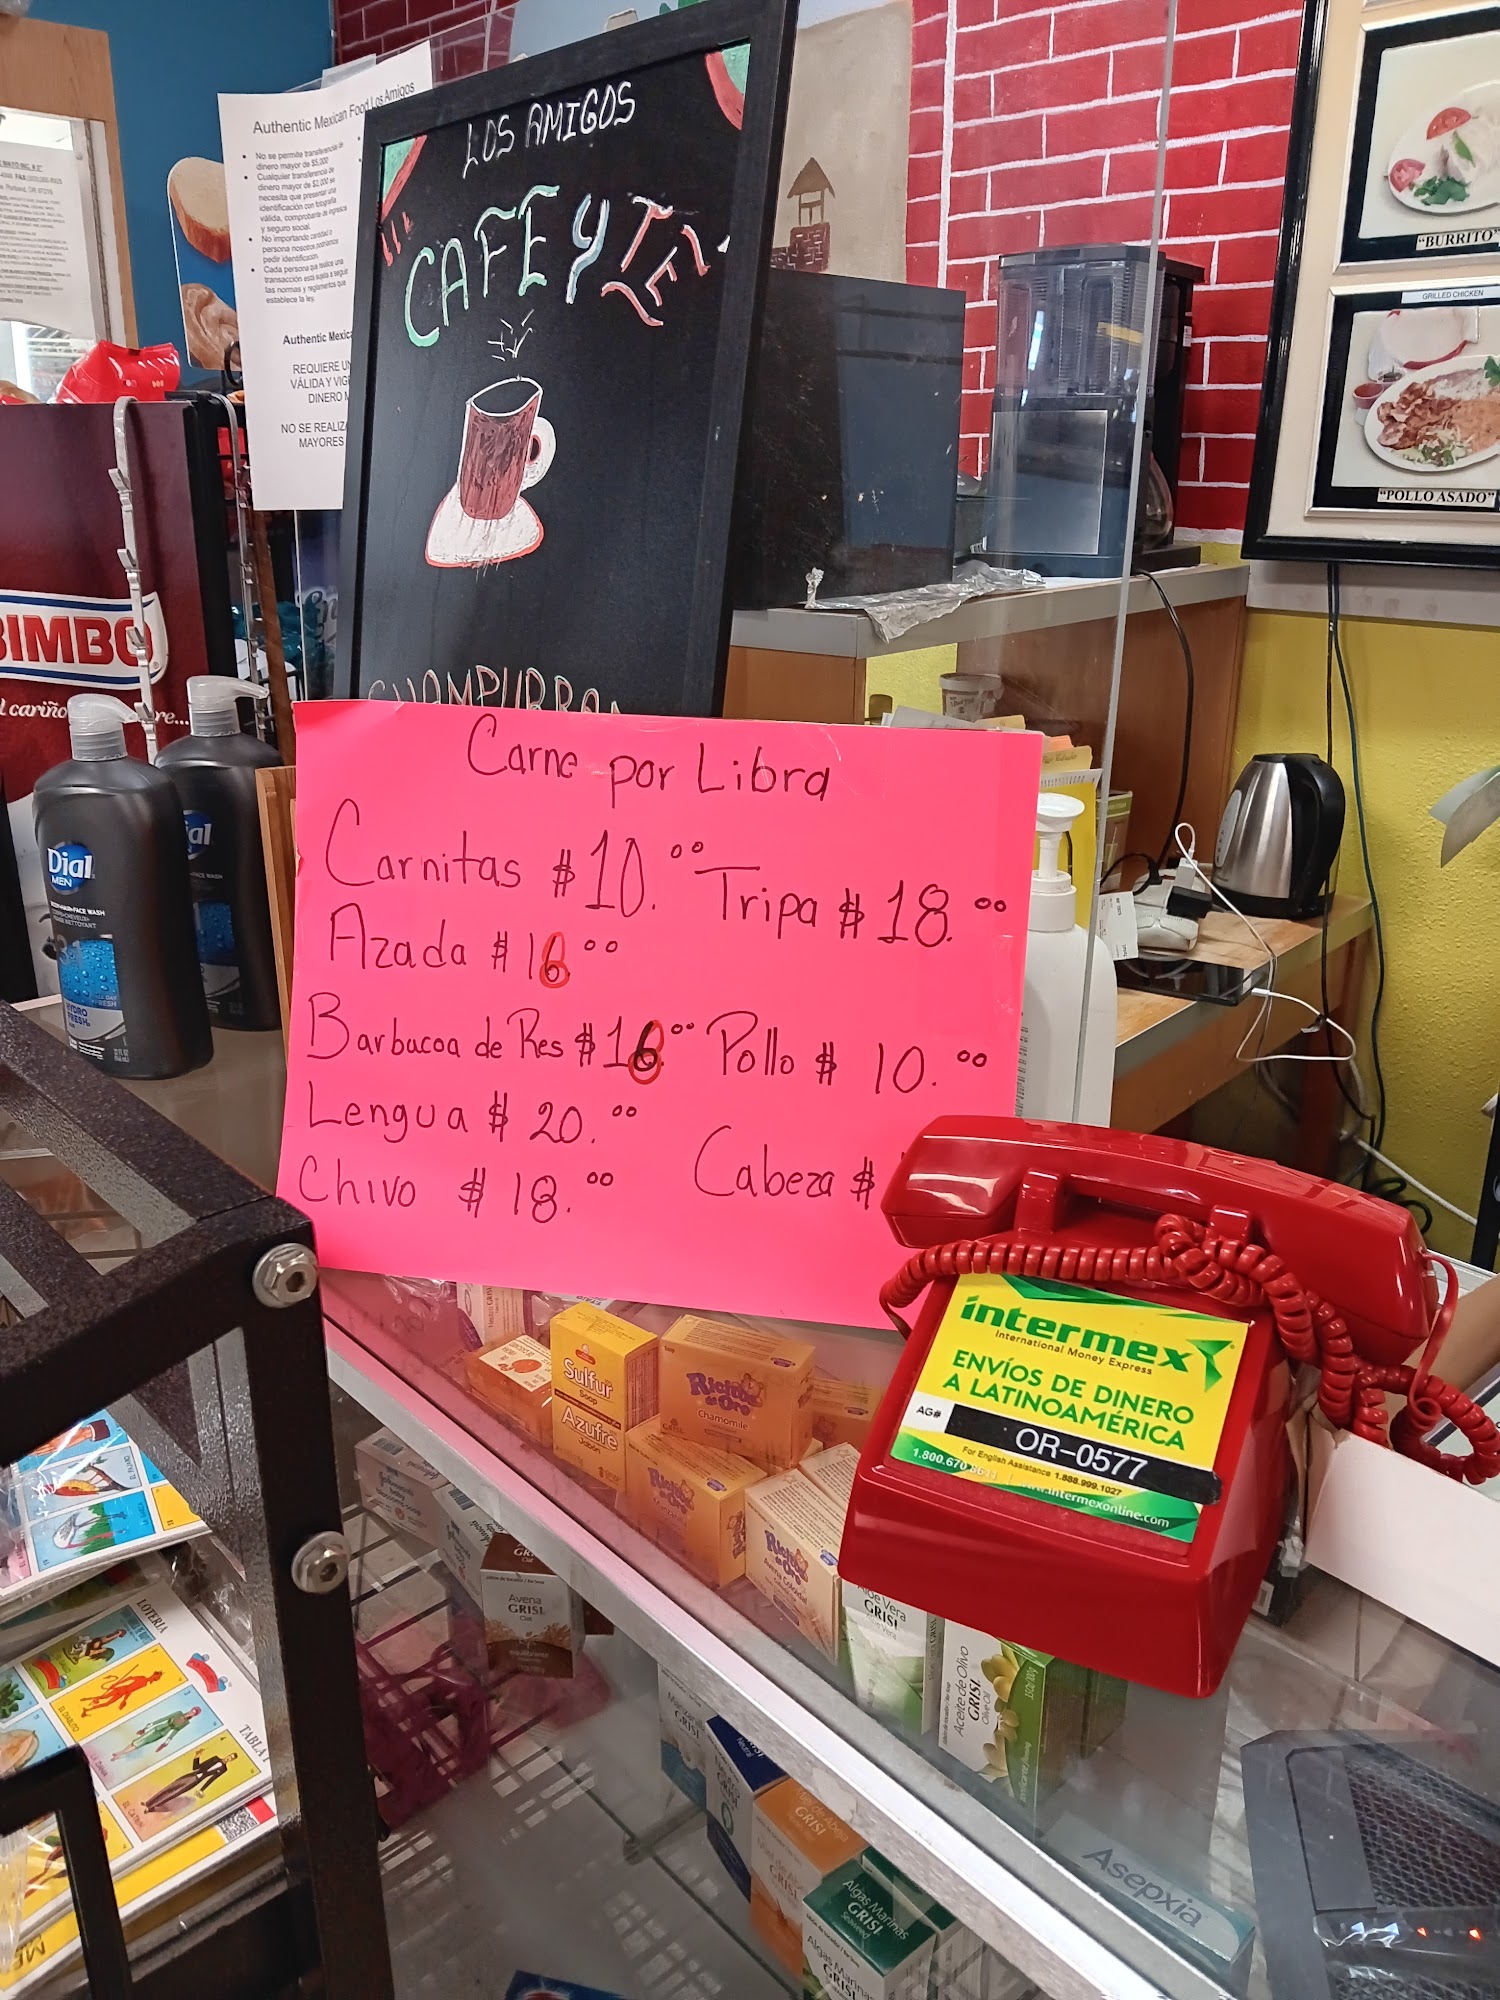 Authentic Mexican Food Los Amigos
No se permite transferencia de
dinero mayor de $5,000
Cualquier transferencia de
dinero mayor de $2,000 se
necesita que presentar una
identificación con fotografía
válida, comprobante de ingresos
y seguro social.
No importando cantidad o
persona nosotros podríamos
pedir identificacion.
Cada persona que realice una
transacción está sujeta a seguir
las normas y reglamentos que
establece la ley.
Authentic Mexica
REQUIERE UN
VÁLIDA Y VIG
DINERO
NO SE REALIZA
MAYORES
LOS AMIGOS
CAFE Y TE
CHAMPURRA
"BURRITO"
GRILLED CHICKEN
"POLLO ASADO"
BIMBO
Dial
MEN
BODY+HAIR+FACE WASH
3in1
HYDRO
FRESH
Dial
Carne por Libra
Carnitas $10.00 Tripa $18.00
Azada $16.00
Barbacoa de Res $16.00 Pollo $10.00
Lengua $20.00
Chivo $18.00 Cabeza $
intermex
International Money Express
ENVÍOS DE DINERO
A LATINOAMÉRICA
AG# OR-0577
For English Assistance 1.888.999.1027
www.intermexonline.com
Sulfur
Soap
Azufre
Jabón
Ricitos de Oro
Chamomile
Ricitos de Oro
Ricitos de Oro
Avena
GRISI
Oat
Aloe Vera
GRISI
Aceite de Olivo
GRISI
Olive Oil
GRISI
Algas Marinas
GRISI
Seaweed
Algas Marinas
GRISI
Asepxia
LOTERIA
TABLA
EL DIABLITO
LA DAMA
EL CATRIN